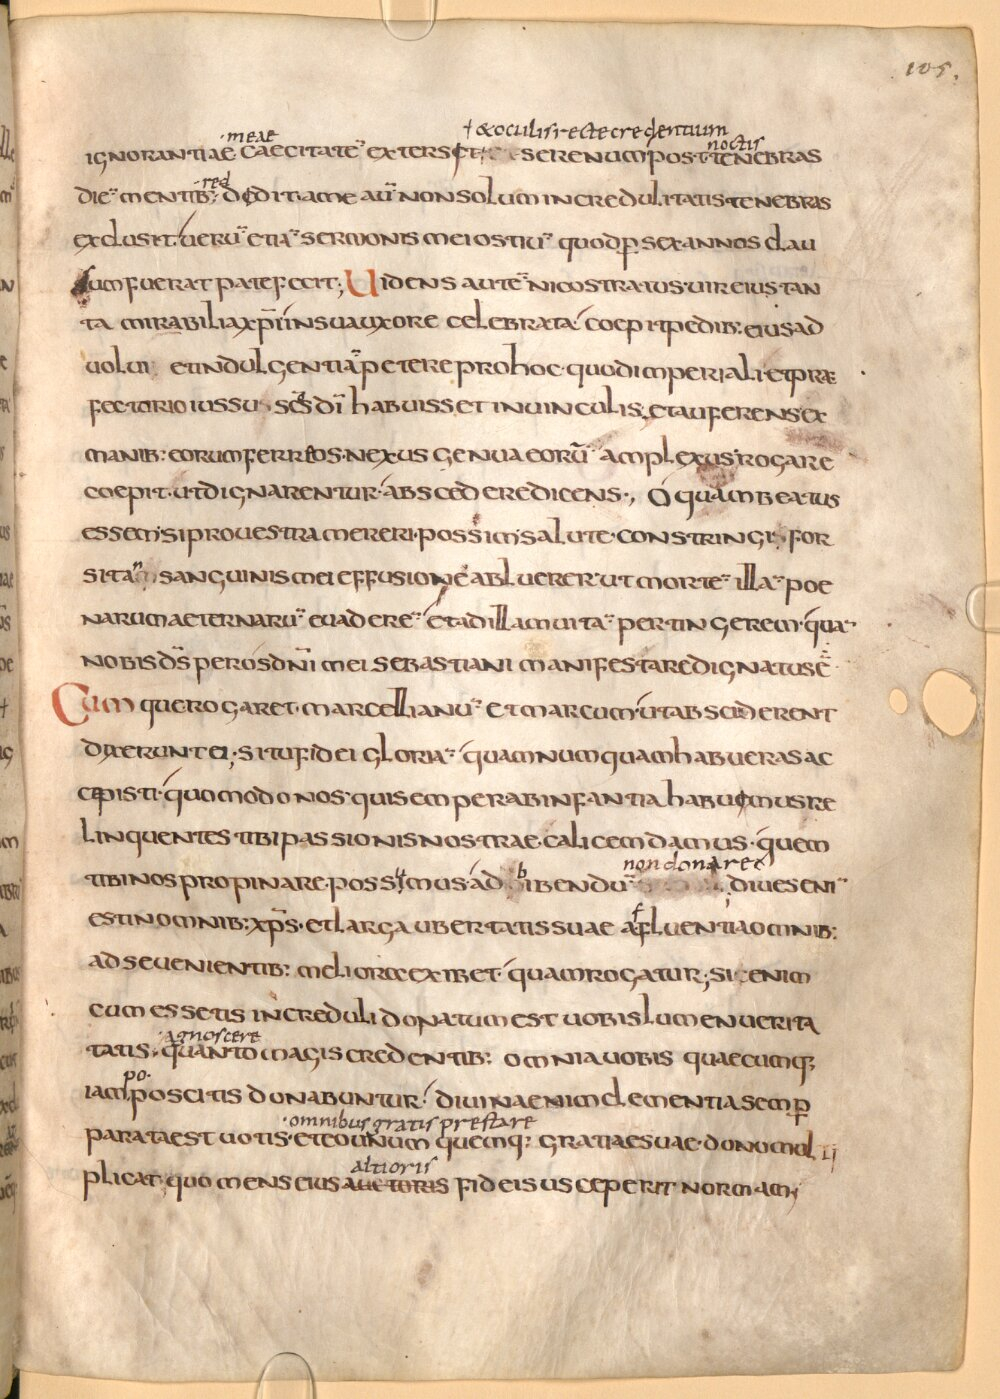 105.
·meae ⸸ & oculis recte credentium noctis
IGNORANTIAE· CAECITATĒ EXTERSIT SERENUM POST TENEBRAS
red
DIĒ MENTIB; DEDIT· A ME AUT̄ NON SOLUM INCREDULITATIS TENEBRAS
EXCLUSIT· UERŪ ETIĀ SERMONIS MEI OSTIŪ QUOD P̱ SEX ANNOS CLAU
SUM FUERAT PATEFECIT; UIDENS AUTĒ NICOSTRATUS· UIR EIUS TAN
TA MIRABILIA XP̄I IN SUA UXORE CELEBRATA· COEPIT PEDIB: EIUS AD
UOLUI ET INDULGENTIĀ PETERE PRO HOC· QUOD IMPERIALI· ET PRAE
FECTORIO IUSSU SC̄S DĪ HABUISSET IN UINCULIS, ET AUFERENS EX
MANIB: EORUM FERREOS· NEXUS GENUA EORŪ AMPLEXUS ROGARE
COEPIT· UT DIGNARENTUR· ABSCEDERE DICENS·, O QUAM BEATUS
ESSEM· SI PRO UESTRA MERERI· POSSIM SALUTE· CONSTRINGI· FOR
SITAN SANGUINIS MEI EFFUSIONE ABLUERER· UT MORTĒ ILLĀ POE
NARUM AETERNARŪ EUADERĒ ET AD ILLAM UITĀ PERTINGEREM· QUĀ
NOBIS DS̄ PER OS DN̄I MEI SEBASTIANI MANIFESTARE DIGNATUS Ē·
CUMQUE ROGARET· MARCELLIANŪ ET MARCUM· UT ABSCEDERENT
DIXERUNT EI; SI TU FIDEI GLORIĀ QUAM NUMQUAM HABUERAS AC
CEPISTI· QUOMODO NOS· QUI SEMPER AB INFANTIA HABUIMUS RE
LINQUENTES TIBI PASSIONIS NOSTRAE· CALICEM DAMUS· QUEM
b non donaret
TIBI NOS PROPINARE· POSSUMUS· AD BIBENDŪ DIUES ENĪ
f
EST IN OMNIB: XP̄S· ET LARGA UBERTATIS SUAE AFLUENTIA OMNIB:
AD SE UENIENTIB: MELIORA EXIBET· QUAM ROGATUR; SI ENIM
CUM ESSETIS INCREDULI DONATUM EST UOBIS LUMEN UERITA
·agnoscere
TATIS· QUANTO MAGIS CREDENTIB: OMNIA UOBIS QUAECUMQ;
po·
IAM POSCITIS DONABUNTUR· DIUINA ENIM CLEMENTIA SEMP̱
·omnibus gratis prestare
PARATA EST UOTIS· ET EORUNUM QUEMQ: GRATIAE SUAE· DONO MUL TI
altioris
PLICAT· QUO MENS EIUS AUCTORIS FIDEI SUSCEPERIT NORMAM;